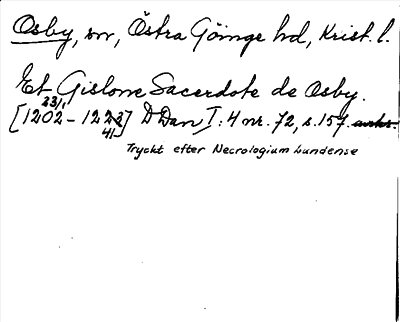 Osby, sn, Östra Göinge hd, Krist. l.
Et Gislone Sacerdote de Osby.
23/1
[1202-1223] D Dan I:4 nr. 72, s. 157.
41
Tryckt efter Necrologium Lundense